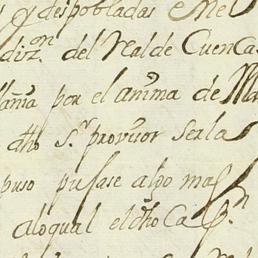 y despobladas e Me
diz.on del Real de Cuenca
por el anima de Ma
dho s.r provisor se las
puso pusase algo mas
a lo qual el dho Ca